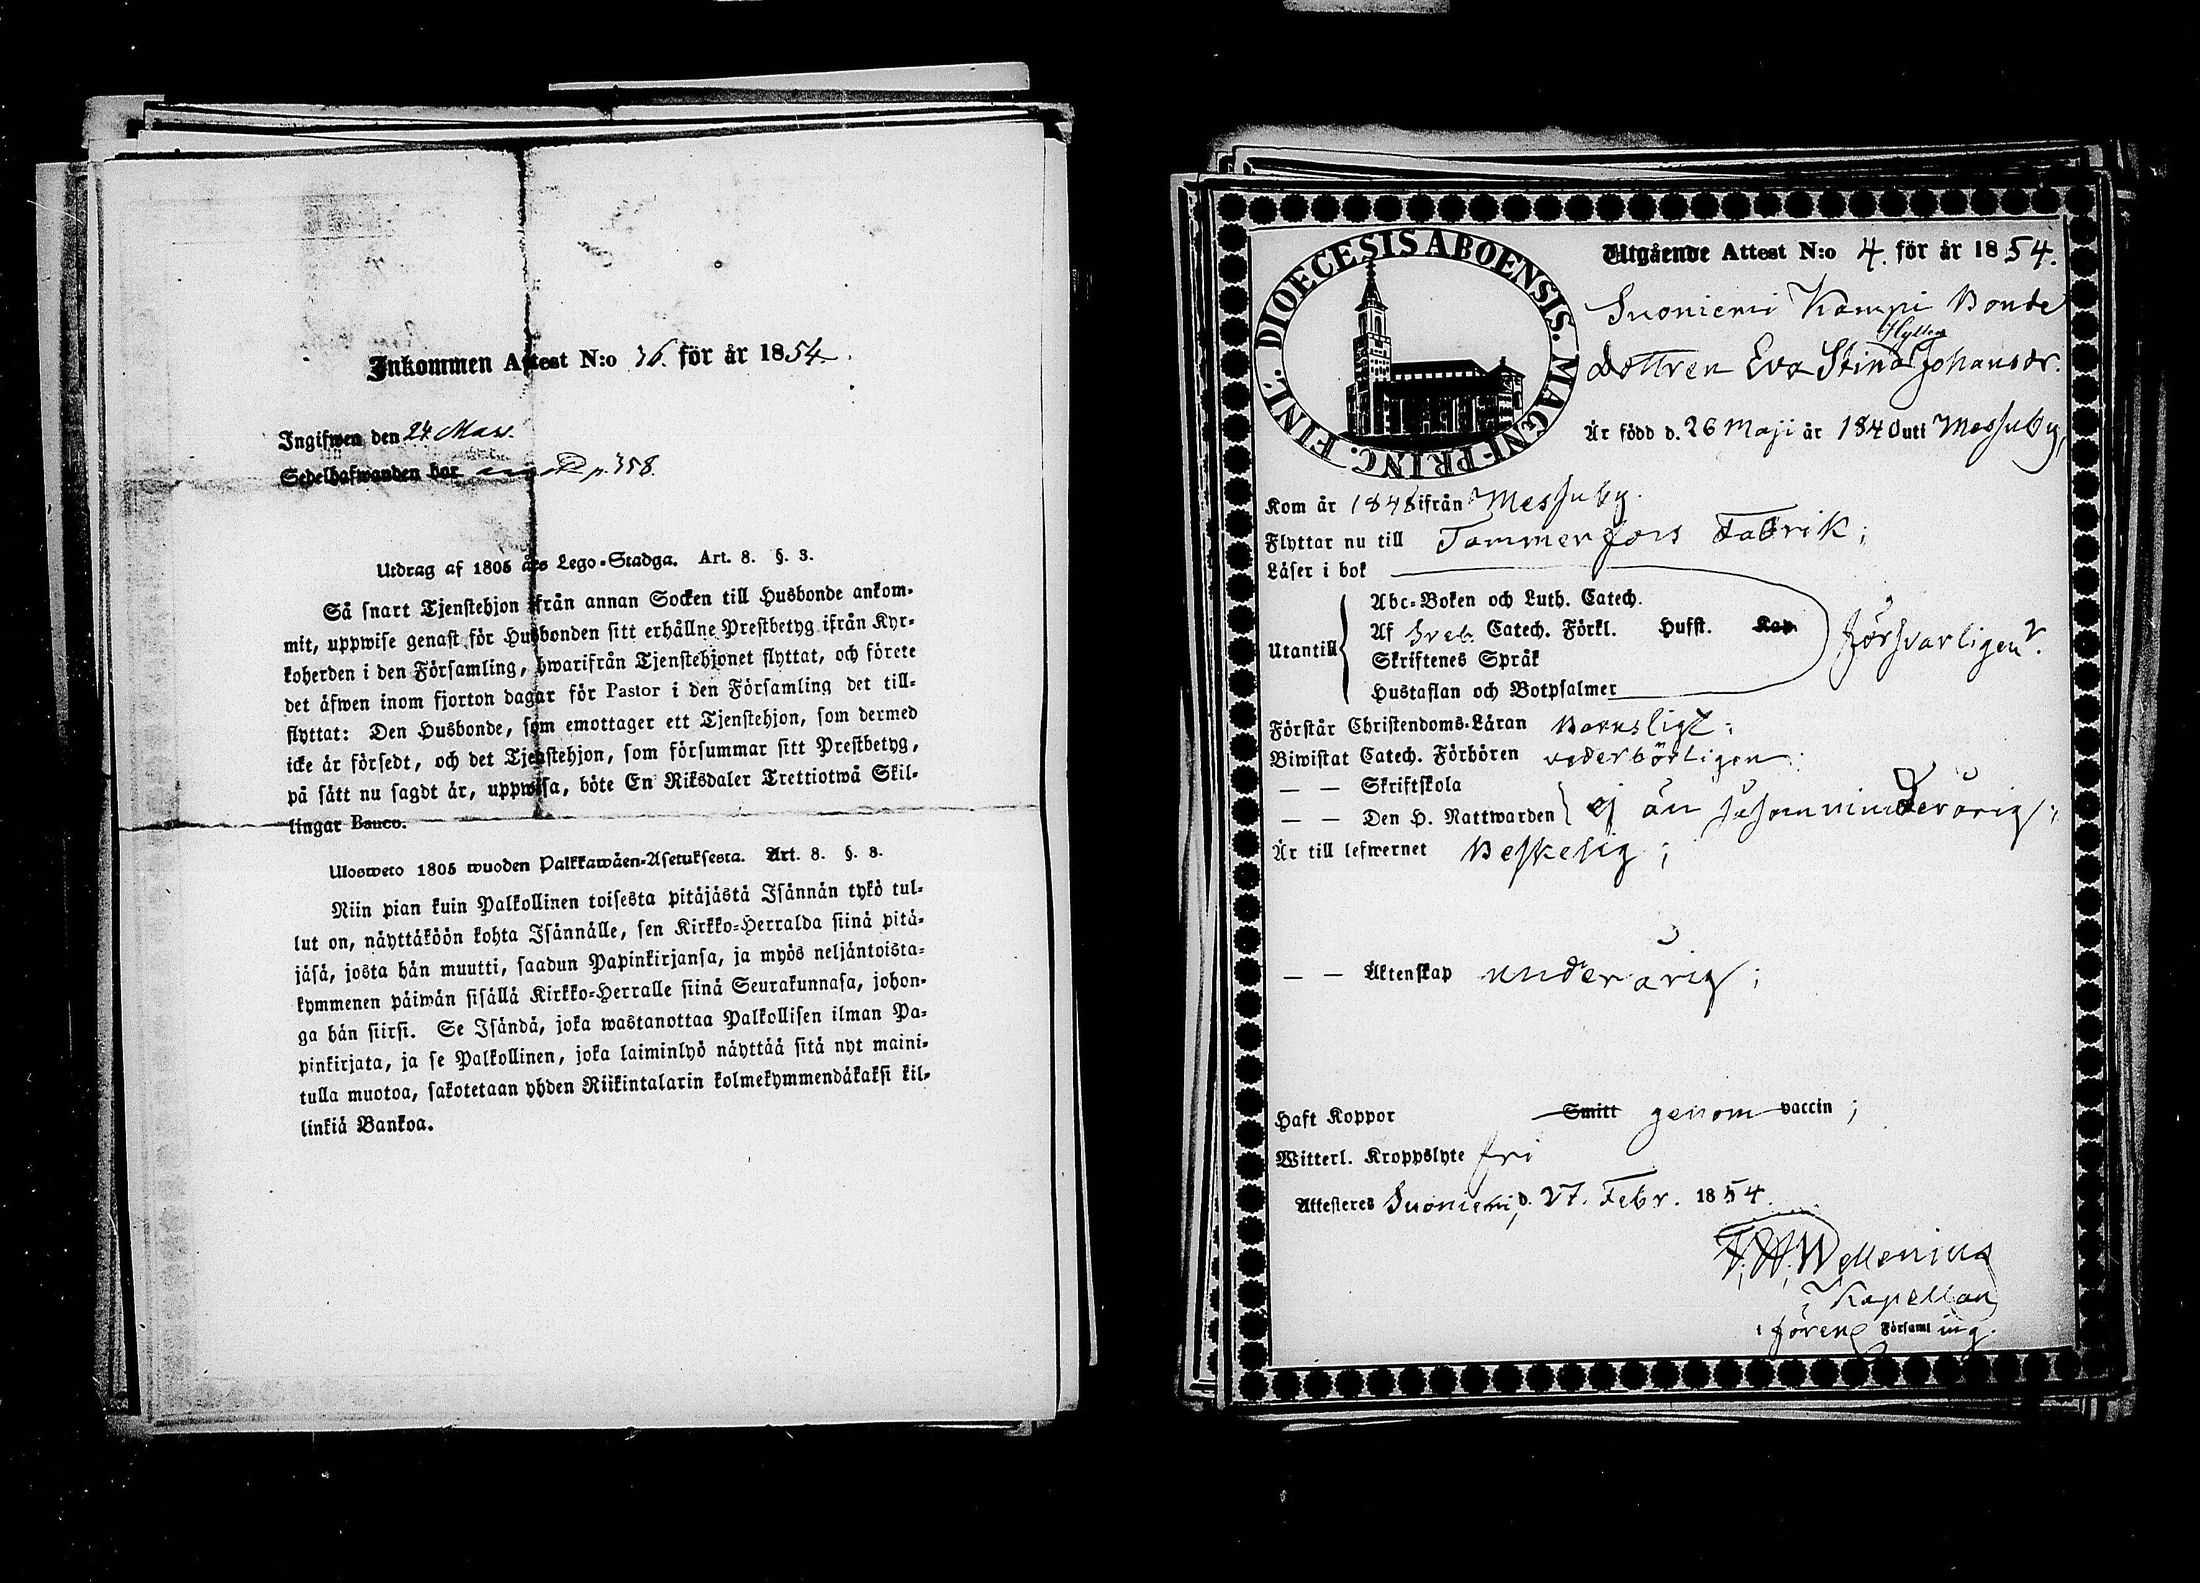 Inkommen Attest N:o 36. för år 1854.
Ingifwen den 24 Mars.
Sedelhafwanden bor p. 358.
Utdrag af 1805 års Lego-Stadga. Art. 8. §. 3.
Så snart Tjenstehjon ifrån annan Socken till Husbonde ankom-
mit, uppwise genast för Husbonden sitt erhållne Prestbetyg ifrån Kyr-
koherden i den Församling, hwarifrån Tjenstehjonet flyttat, och förete
det äfwen inom fjorton dagar för Pastor i den Församling det till-
flyttat: Den Husbonde, som emottager ett Tjenstehjon, som dermed
icke är försedt, och det Tjenstehjon, som försummar sitt Prestbetyg,
på sätt nu sagdt är, uppwisa, böte En Riksdaler Trettiotwå Skil-
lingar Banco.
Ulosweto 1805 wuoden Palkkawäen-Asetuksesta. Art. 8. §. 8.
Niin pian kuin Palkollinen toisesta pitäjästä Isännän tykö tul-
lut on, näyttäköön kohta Isännälle, sen Kirkko-Herralda siinä pitä-
jäsä, josta hän muutti, saadun Papinkirjansa, ja myös neljäntoista-
kymmenen päiwän sisällä Kirkko-Herralle siinä Seurakunnasa, johon-
ga hän siirsi. Se Isändä, joka wastanottaa Palkollisen ilman Pa-
pinkirjata, ja se Palkollinen, joka laiminlyö näyttää sitä nyt maini-
tulla muotoa, sakotetaan yhden Riikintalarin kolmekymmendäkaksi kil-
linkiä Bankoa.
DIOECESIS ABOENSIS. MAGNI-PRINC. FINL.
Utgående Attest N:o 4. för år 1854.
Suoniemi Kampi Bonde
Dottren Eva Stina Johansdr.
Är född d. 26 Maji år 1840 uti Messuby,
Kom år 1848 ifrån Messuby.
Flyttar nu till Tammerfors Fabrik;
Läser i bok
Utantill
Abc-Boken och Luth. Catech.
Af Sveb. Catech. Förkl. Husst. Kap.
Skriftenes Språk
Hustaflan och Botpsalmer
försvarligen
Förstår Christendoms-Läran Barnsligt;
Biwistat Catech. Förhören vederbörligen;
— — Skriftskola
— — Den H. Nattwarden ej än såsom minderårig;
Är till lefwernet Beskelig;
— — Äktenskap underårig;
Haft Koppor Smitt genom vaccin;
Witterl. Kroppslyte fri
Attesteres Suoniemi, d. 27. Febr. 1854.
Wellenius
Kapellan
i fören. Församling.